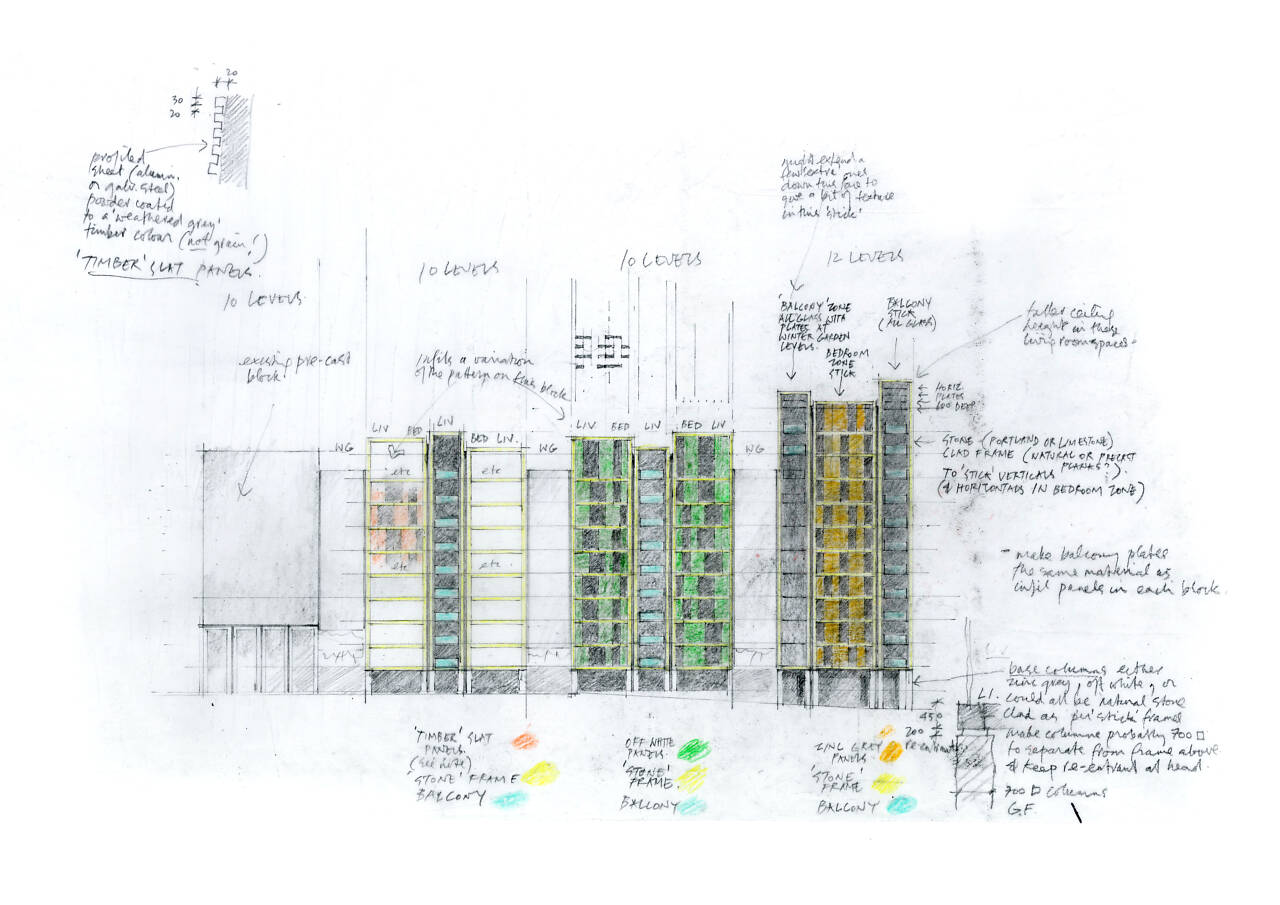 20
30
20
profiled
sheet (alumin.
or galv. steel)
powder coated
to a 'weathered grey'
timber colour (not grain!)
'TIMBER' SLAT PANELS.
10 LEVELS
10 LEVELS
10 LEVELS
12 LEVELS
might extend a
few extra ones
down this face to
give a bit of texture
in this 'stick'
existing pre-cast
block
Infils a variation
of the pattern on block
'BALCONY' ZONE
ALL GLASS WITH
PLATES AT
WINTER GARDEN
LEVELS.
BEDROOM
ZONE
STICK
BALCONY
STICK
(ALL GLASS)
taller ceiling
height in these
living room spaces
HORIZ
PLATES
600 DEEP
STONE (PORTLAND OR LIMESTONE)
CLAD FRAME (NATURAL OR PRECAST
PLANKS?)
TO 'STICK' VERTICALS
(& HORIZONTALS IN BEDROOM ZONE)
WG
LIV
BED
LIV
BED LIV.
WG
LIV BED
BED LIV
WG
etc
etc
etc
etc
- make balcony plates
the same material as
infil panels in each block.
base columns either
zinc grey, off white, or
could all be natural stone
clad as per 'stick' frames
make columns probably 700 □
to separate from frame above
& keep re-entrant at head.
700 □ columns
G.F.
L1.
450
200
'TIMBER' SLAT
PANELS.
'STONE' FRAME
BALCONY
OFF WHITE
PANELS.
'STONE'
FRAME.
BALCONY
ZINC GREY
PANELS
'STONE'
FRAME
BALCONY